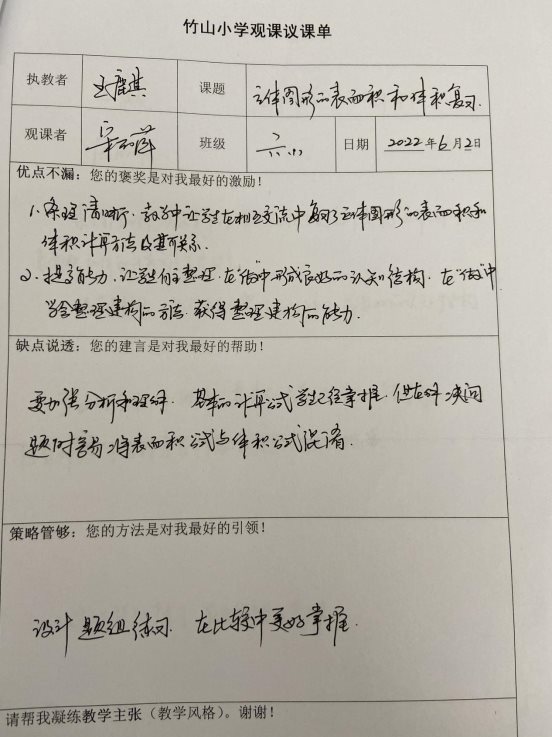 竹山小学观课议课单
执教者 王麒 课题 立体图形的表面积和体积复习.
观课者 班级 六.(八) 日期 2022年6月2日
优点不漏：您的褒奖是对我最好的激励！
1、条理清晰. 教学中让学生在相互交流中复习了立体图形的表面积和
体积计算方法及其联系.
2、提高能力. 让学生自主整理. 在“做”中形成良好的认知结构. 在“做”中
学会整理建构的方法. 获得整理建构的能力.
缺点说透：您的建言是对我最好的帮助！
要加强分析和理解. 基本的计算公式学生已经掌握. 但在解决问
题时容易将表面积公式与体积公式混淆.
策略管够：您的方法是对我最好的引领！
设计题组练习. 在比较中更好掌握.
请帮我凝练教学主张（教学风格）。谢谢！